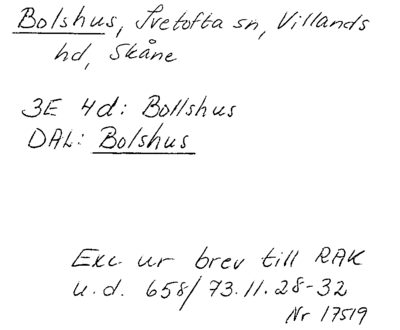 Bolshus, Ivetofta sn, Villands
hd, Skåne
3E 4d: Bollshus
DAL: Bolshus
Exc. ur brev till RAK
u.d. 658/73.11.28-32
Nr 17519